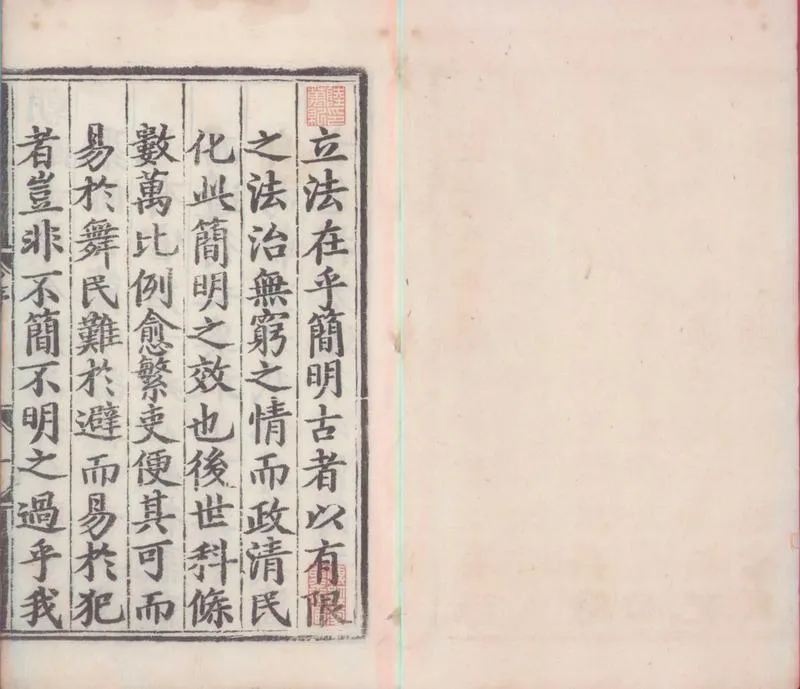 立法在乎簡明古者以有限
之法治無窮之情而政清民
化此簡明之效也後世科條
數萬比例愈繁吏便其可而
易於舞民難於避而易於犯
者豈非不簡不明之過乎我